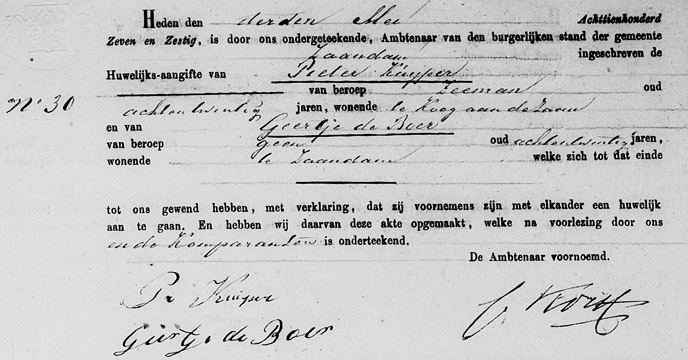 Heden den derden Mei Achttienhonderd
Zeven en Zestig, is door ons ondergeteekende, Ambtenaar van den burgerlijken stand der gemeente
Zaandam ingeschreven de
Huwelijks-aangifte van Pieter Kuyper
van beroep Zeeman oud
No. 30
achtentwintig jaren, wonende te Koog aan de Zaan
en van Geertje de Boer
van beroep geen oud achtentwintig jaren,
wonende te Zaandam welke zich tot dat einde
tot ons gewend hebben, met verklaring, dat zij voornemens zijn met elkander een huwelijk
aan te gaan. En hebben wij daarvan deze akte opgemaakt, welke na voorlezing door ons
en de Komparanten is onderteekend.
De Ambtenaar voornoemd.
Pr Kuiper
Geertje de Boer